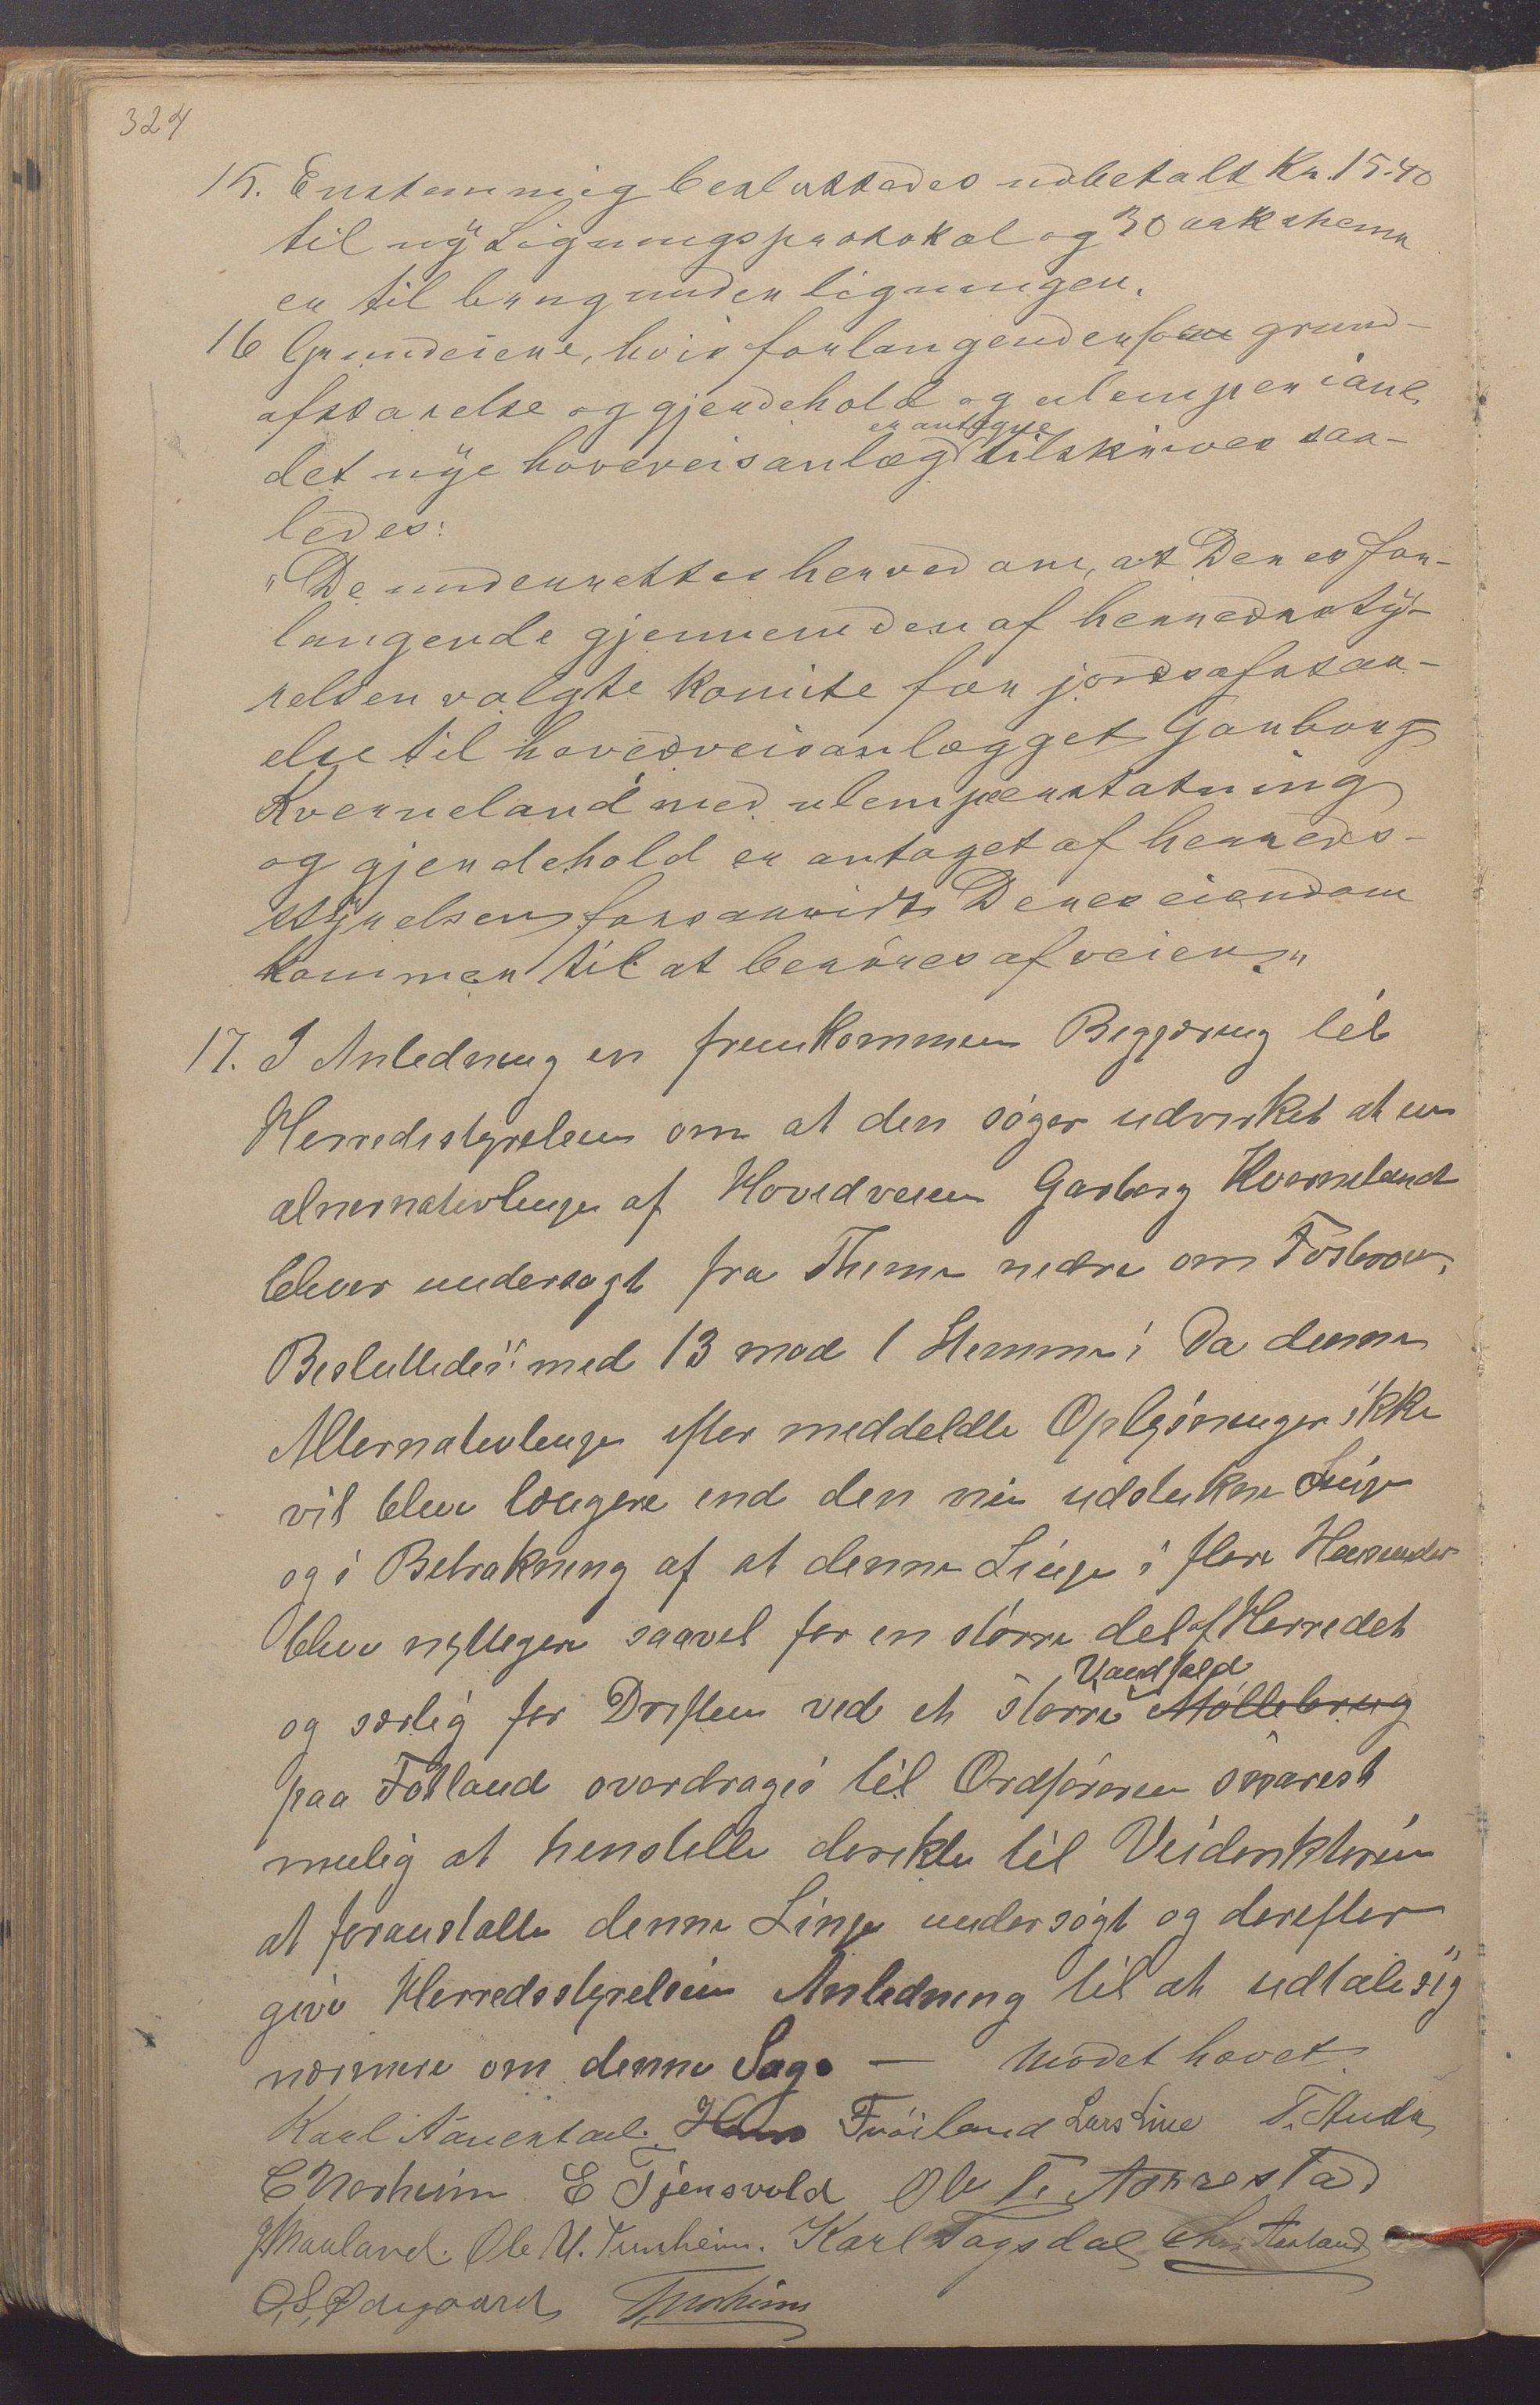 324
15. Enstemmig besluttedes udbetalt Kr. 15.40
til ny Ligningsprotokol og 30 ark skema
er til brug under ligningen.
16 Grundeiere, hvis forlangender for grund-
afstaaelse og gjerdehold og ulemper i anl.
det nye hovedveisanlæg er antagne tilskrives saa-
ledes:
"De underrettes herved om, at Deres for-
langende gjennem den af herredssty-
relsen valgte komite for jordsafstaa-
else til hovedveisanlægget Garborg
Kverneland med ulempeerstatning
og gjerdehold er antaget af herreds-
styrelsen forsaavidt Deres eiendom
kommer til at berøres af veien."
17. I Anledning en fremkommen Begjæring til
Herredsstyrelsen om at den søger udvirket at en
alnernativlinje af Hovedveien Garborg Kverneland
bliver undersøgt fra Thime nedre om Fosbroen,
Besluttedes: med 13 mod 1 Stemme: Da denne
Alternativlinje efter meddeldte Oplysninger ikke
vil blive længere end den nu udstukne Linje
og i Betrakning af at denne Linje i flere Henseender
blive nyttigere saavel for en større del af Herredet
og særlig for Driften ved et større Vandfald Møllebrug
paa Fotland overdrages til Ordføreren snarest
mulig at henstille direkte til Veidirektøren
at foranstalte denne Linje undersøgt og derefter
give Herredsstyrelsen Anledning til at udtale sig
nærmere om denne Sag. — Mødet hævet.
Karl Aanestad. Frøiland Lars Line
C Norheim E Tjensvold Ole T. Aarrestad
Maaland. Ole U. Tunheim. Karl Tagsdal
O. S. Ødegaard